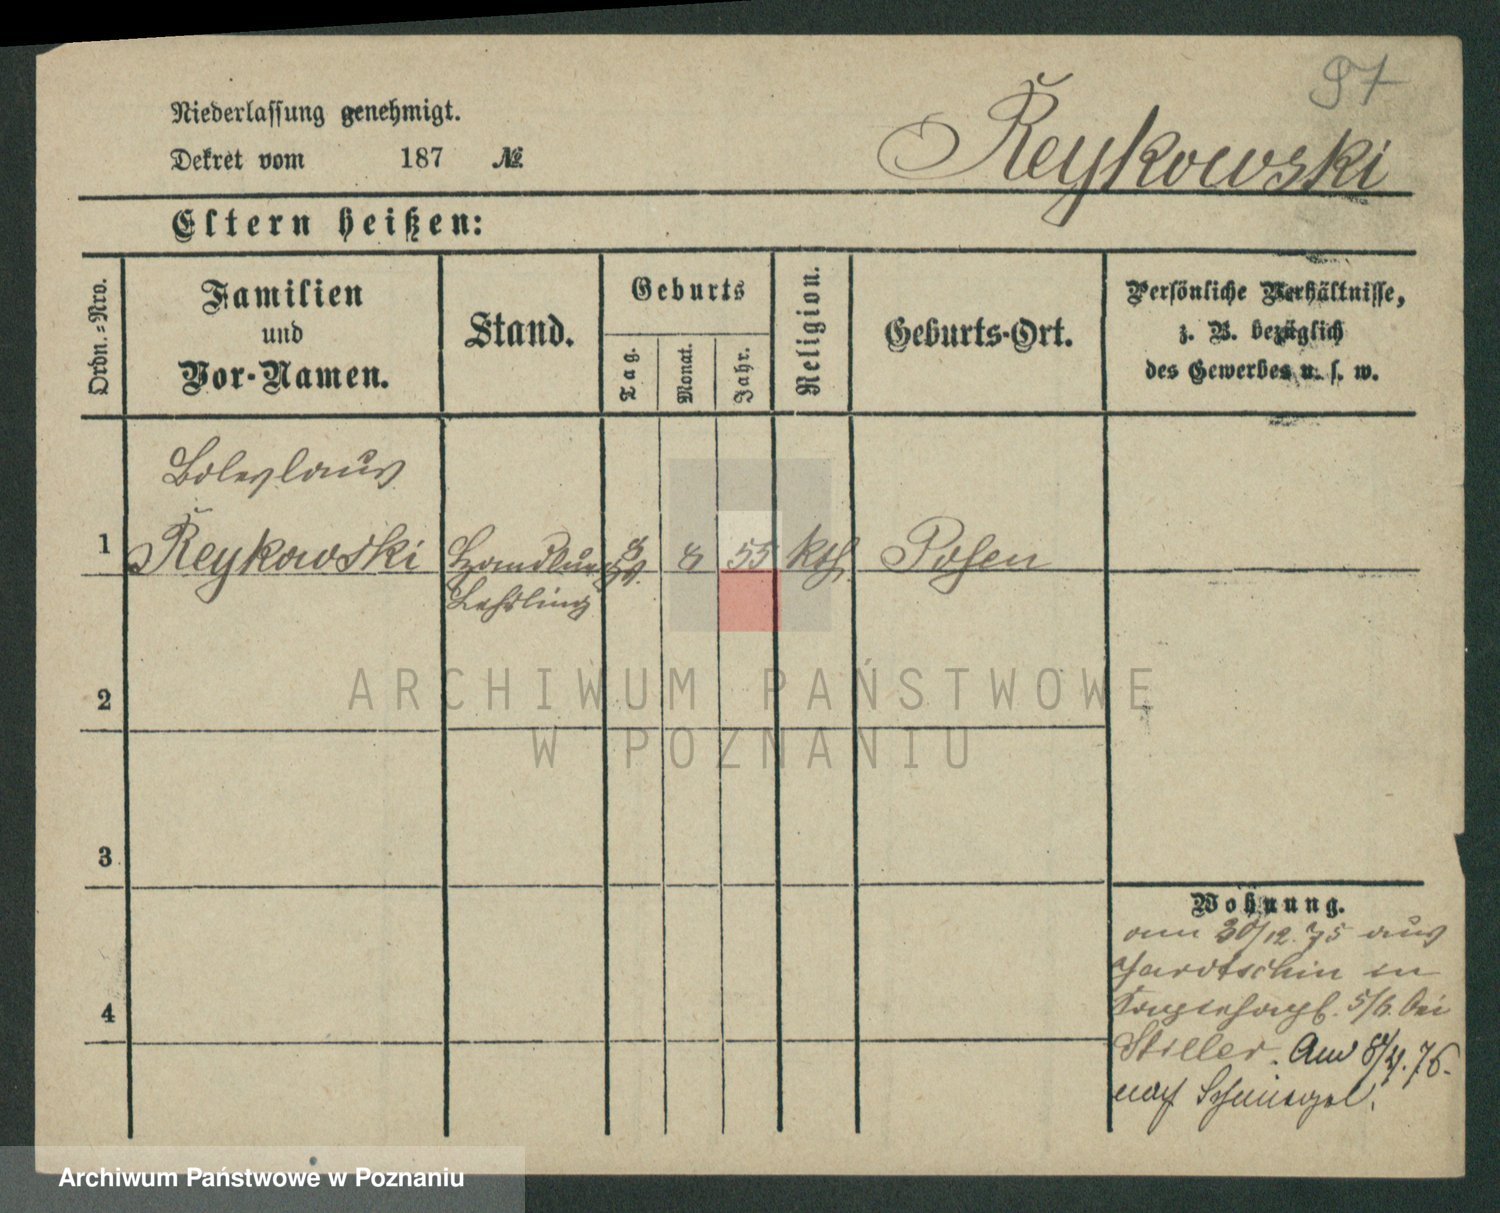 97
Niederlassung genehmigt.
Dekret vom 187 №
Reykowski
Eltern heißen:
Ordn.-Nro.
Familien
und
Vor-Namen.
Stand.
Geburts
Tag.
Monat.
Jahr.
Religion.
Geburts-Ort.
Persönliche Verhältnisse,
z. B. bezüglich
des Gewerbes u. s. w.
Boleslaus
1 Reykowski Handlungs 8 55 kth. Posen
Lehrling
2
3
4
Wohnung.
am 30/12. 75 aus
Jarotschin in
5/6. bei
Stiller. Am 8/4. 76.
nach Schmiegel.
ARCHIWUM PAŃSTWOWE
W POZNANIU
Archiwum Państwowe w Poznaniu